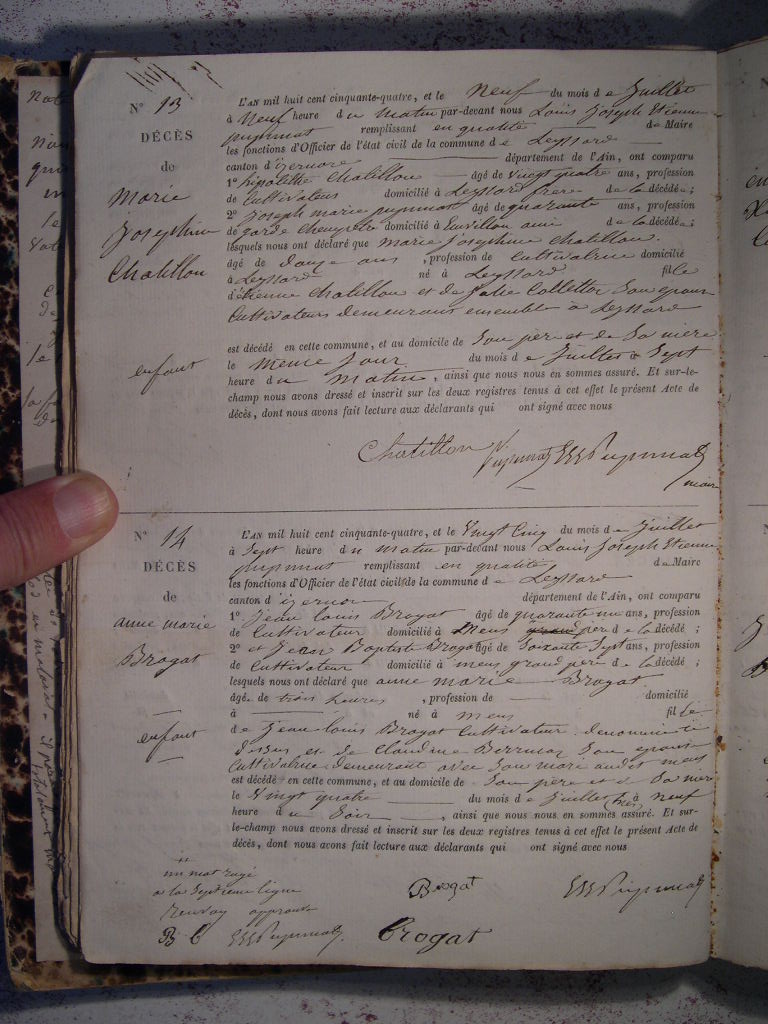 N° 13
DÉCÈS
de
Marie
Josephine
Chatillon
enfant
L'AN mil huit cent cinquante-quatre, et le Neuf du mois de Juillet
à Neuf heure du matin par-devant nous Louis Joseph Etienne
pupunat remplissant en qualité de Maire
les fonctions d'Officier de l'état civil de la commune de Leyssard
canton d'izernore département de l'Ain, ont comparu
1° hipolitte Chatillon âgé de vingt quatre ans, profession
de Cultivateur domicilié à Leyssard frere de la décédée;
2° Joseph marie pupunat âgé de quarante ans, profession
de garde champetre domicilié à ami de la décédée;
lesquels nous ont déclaré que marie Josephine Chatillon
âgé de douze ans, profession de Cultivatrice domicilié
à Leyssard né à Leyssard fille
d'étienne Chatillon et de Julie Collettaz Son epouse
Cultivateurs demeurans ensemble à Leyssard
est décédé en cette commune, et au domicile de Son père et de Sa mère
le meme Jour du mois de Juillet à Sept
heure du matin, ainsi que nous nous en sommes assuré. Et sur-le-
champ nous avons dressé et inscrit sur les deux registres tenus à cet effet le présent Acte de
décès, dont nous avons fait lecture aux déclarants qui ont signé avec nous
Chatillon Pupunat Pupunat
maire
N° 14
DÉCÈS
de
anne marie
Brogat
enfant
L'AN mil huit cent cinquante-quatre, et le Vingt Cinq du mois de Juillet
à Sept heure du matin par-devant nous Louis Joseph Etienne
pupunat remplissant en qualité de Maire
les fonctions d'Officier de l'état civil de la commune de Leyssard
canton d'izernore département de l'Ain, ont comparu
1° Jean Louis Brogat âgé de quarante un ans, profession
de Cultivateur domicilié à Mens père de la décédé;
2° et Jean Baptiste Brogat âgé de Soixante Sept ans, profession
de Cultivateur domicilié à mens grand père de la décédé;
lesquels nous ont déclaré que anne marie Brogat
âgé de trois heures, profession de domicilié
à né à mens fille
de Jean Louis Brogat Cultivateur denommé Ci
dessus et de Claudine Son epouse
Cultivatrice demeurant avec Son mari audit mens
est décédé en cette commune, et au domicile de Son père et de Sa mère
le Vingt quatre du mois de Juillet à neuf
heure du Soir, ainsi que nous nous en sommes assuré. Et sur-
le-champ nous avons dressé et inscrit sur les deux registres tenus à cet effet le présent Acte de
décès, dont nous avons fait lecture aux déclarants qui ont signé avec nous
un mot rayé
a la Septieme ligne
Renvoy approuvé
B Pupunat
Brogat
Brogat
Pupunat